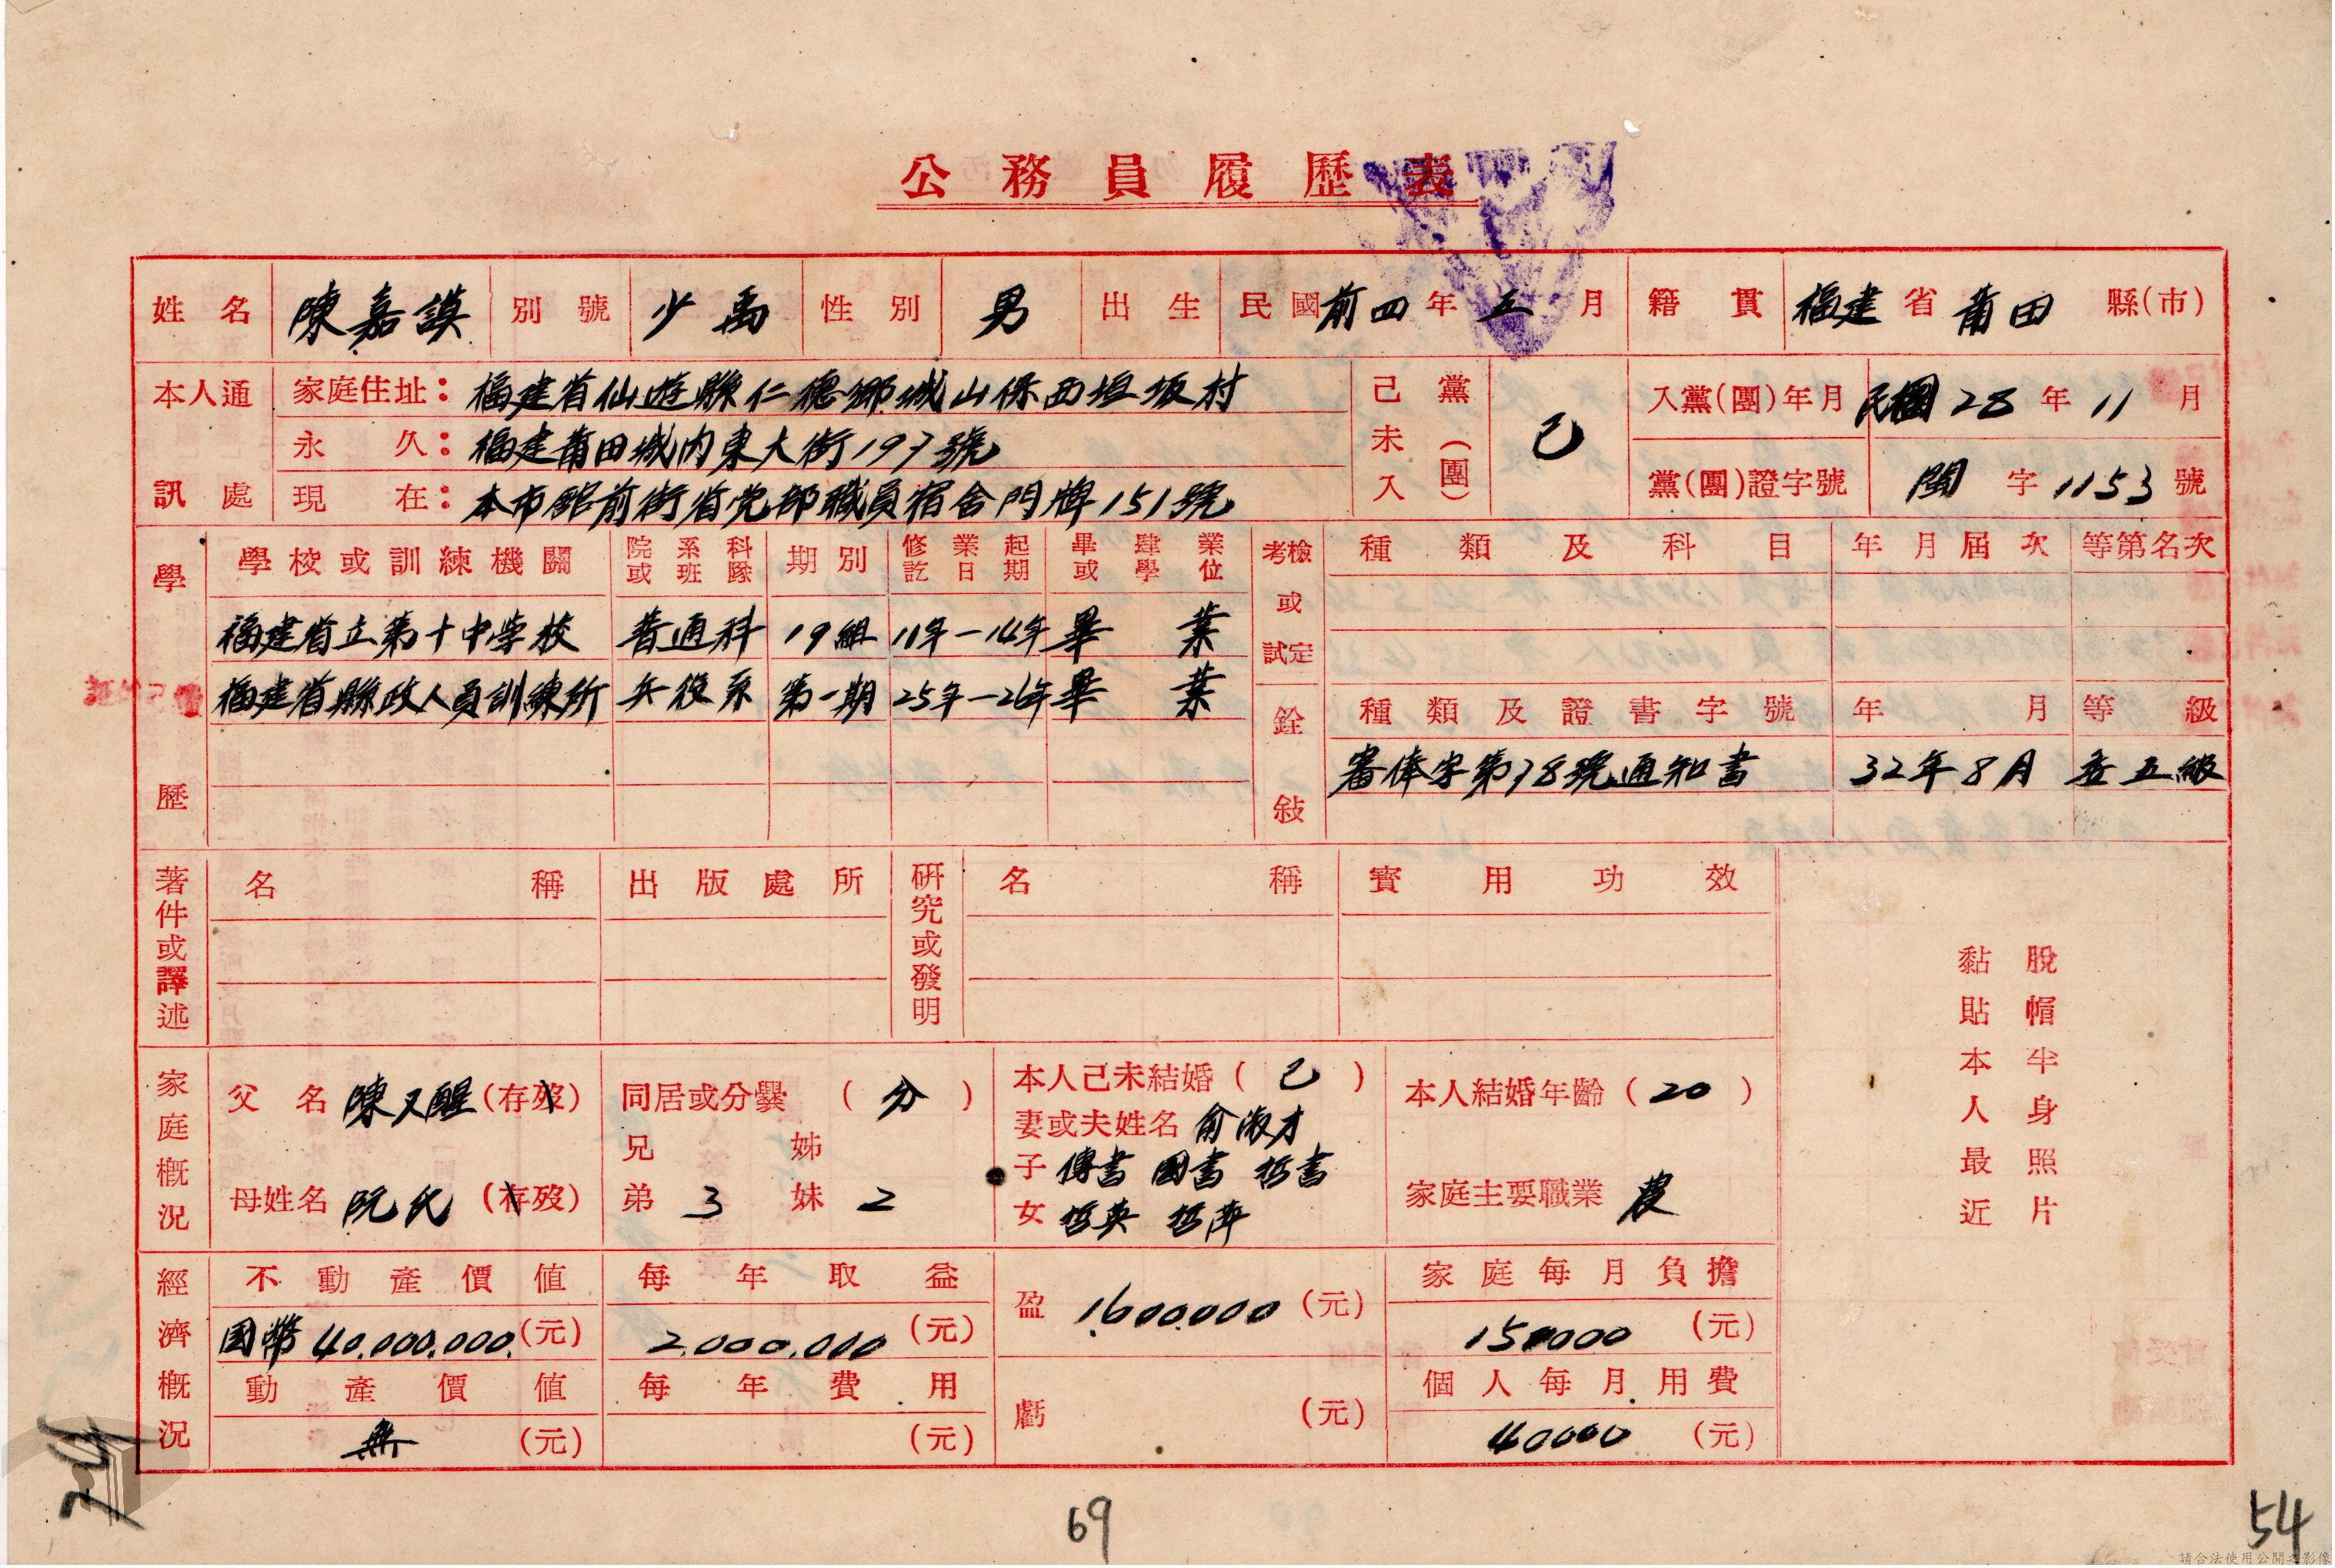 公務員履歷表
姓名 陳嘉謨 別號 少禹 性別 男 出生 民國前四年五月 籍貫 福建省莆田縣(市)
本人通訊處
家庭住址：福建省仙遊縣仁德鄉城山保西垣坂村
永久：福建莆田城內東大街197號
現在：本市館前街省党部職員宿舍門牌151號
已未入黨(團) 已
入黨(團)年月 民國28年11月
黨(團)證字號 閩字1153號
學歷
學校或訓練機關 院系科或班隊 期別 修業起訖日期 畢肄業或學位
福建省立第十中学校 普通科 19組 11年—14年 畢業
福建省縣政人員訓練所 兵役系 第一期 25年—26年 畢業
考試或檢定 種類及科目 年月屆次 等第名次
銓敍 種類及證書字號 年月 等級
審俸字第78號通知書 32年8月 委五級
著件或譯述 名稱 出版處所
研究或發明 名稱 實用功效
脫帽半身照片
黏貼本人最近
家庭概況
父名 陳又醒 (存歿)
母姓名 阮氏 (存歿)
同居或分爨 (分)
兄 姊
弟 3 妹 2
本人已未結婚 (已)
妻或夫姓名 俞淑才
子 傳書 國書 哲書
女 哲英 哲萍
本人結婚年齡 (20)
家庭主要職業 農
經濟概況
不動產價值 每年取益
國幣40.000.000.(元) 2.000.000(元)
動產價值 每年費用
無(元) (元)
盈 1.600.000(元)
虧 (元)
家庭每月負擔
150000(元)
個人每月用費
40000(元)
69
54
請合法使用公開之影像